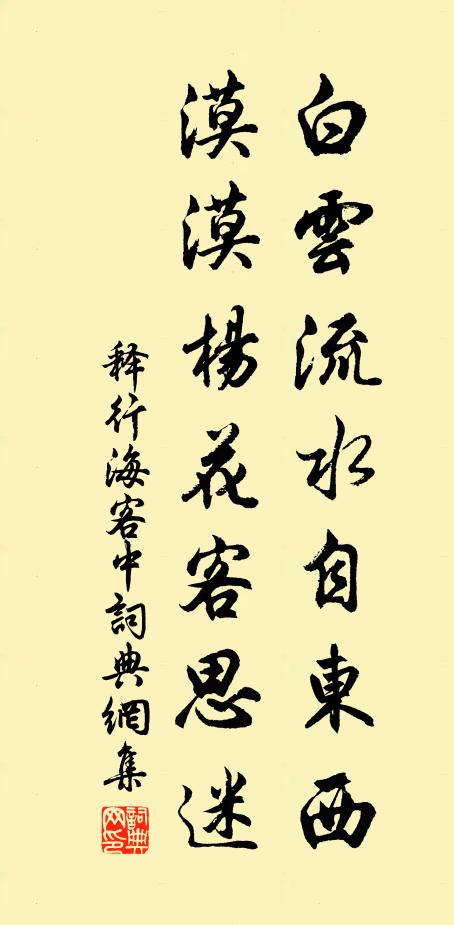 白雲流水自東西
漠漠楊花客思迷
释行海客中詞典網集
詞典網印